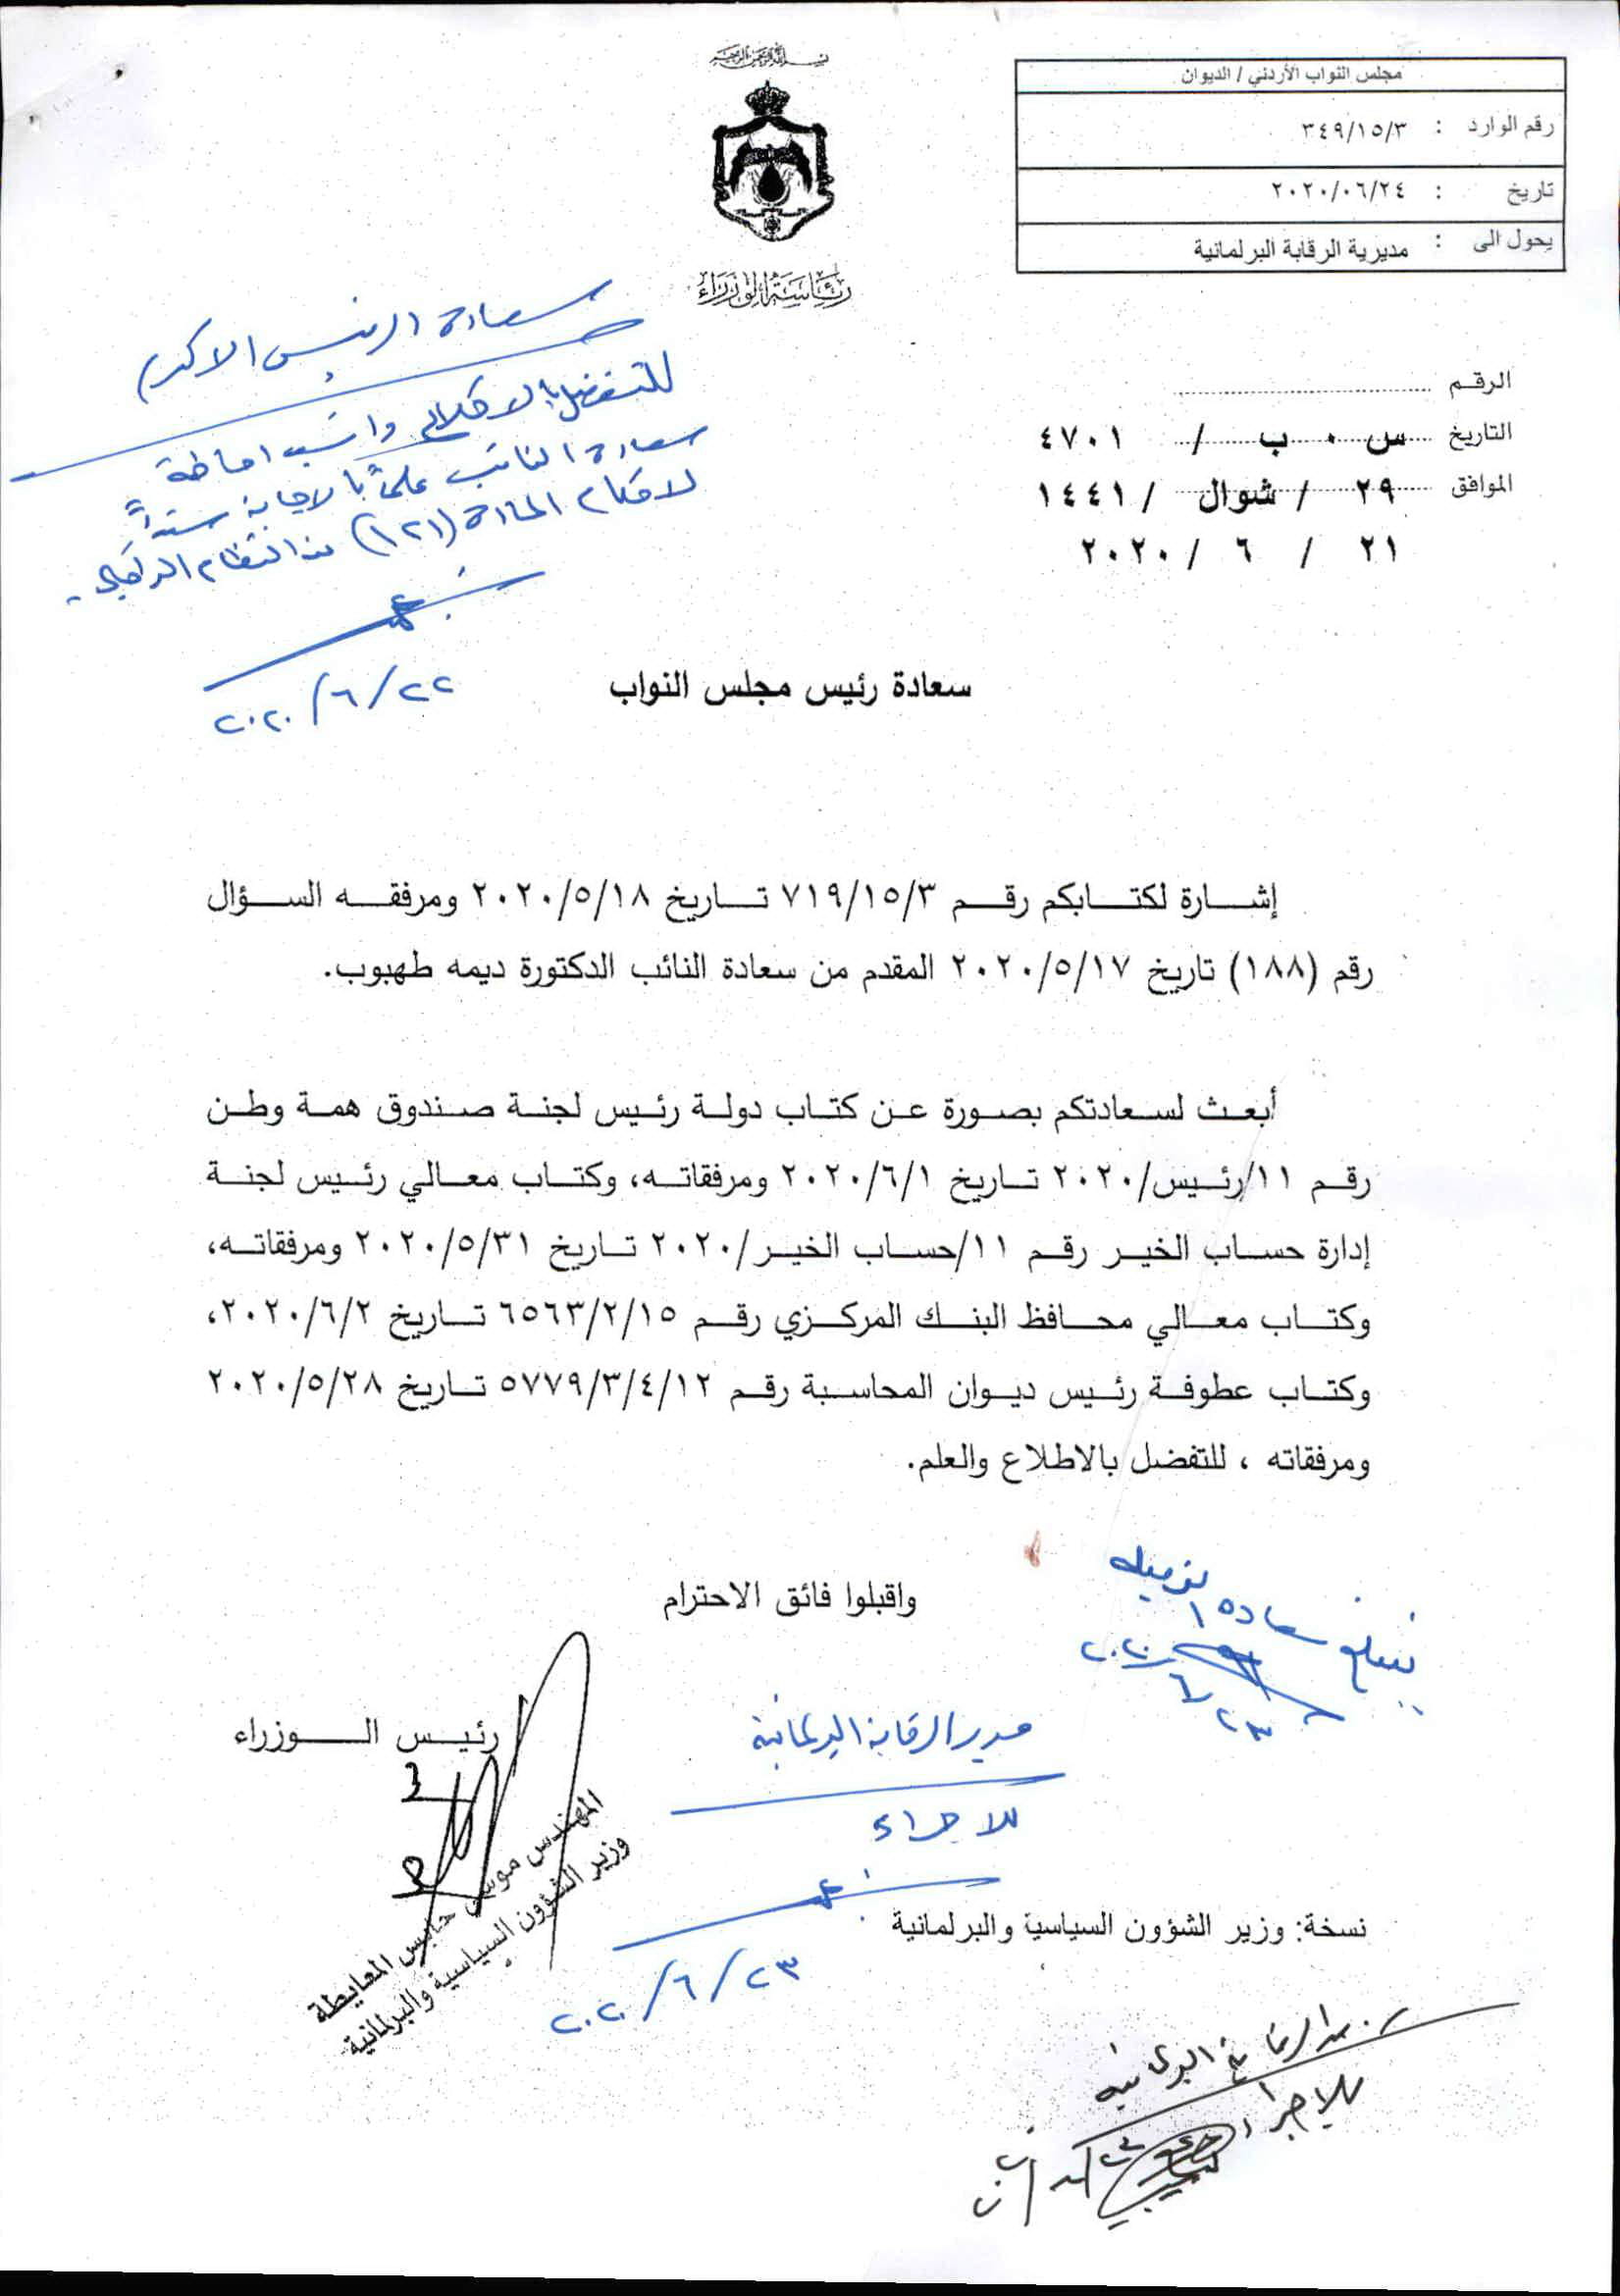 بسم الله الرحمن الرحيم
رئاسة الوزراء
مجلس النواب الأردني / الديوان
رقم الوارد : ٣٤٩/١٥/٣
تاريخ : ٢٠٢٠/٠٦/٢٤
يحول الى : مديرية الرقابة البرلمانية
الرقم
التاريخ س ٠ ب / ٤٧٠١
الموافق ٢٩ / شوال / ١٤٤١
٢١ / ٦ / ٢٠٢٠
سعادة الرئيس الاكرم
للتفضل بالاطلاع وانسب احاطة
سعادة النائب علماً بالاجابة سنداً
لاحكام المادة (١٢١) من النظام الداخلي.
٢٠٢٠/٦/٢٢
سعادة رئيس مجلس النواب
إشارة لكتابكم رقم ٧١٩/١٥/٣ تاريخ ٢٠٢٠/٥/١٨ ومرفقه السؤال
رقم (١٨٨) تاريخ ٢٠٢٠/٥/١٧ المقدم من سعادة النائب الدكتورة ديمه طهبوب.
أبعث لسعادتكم بصورة عن كتاب دولة رئيس لجنة صندوق همة وطن
رقم ١١/رئيس/٢٠٢٠ تاريخ ٢٠٢٠/٦/١ ومرفقاته، وكتاب معالي رئيس لجنة
إدارة حساب الخير رقم ١١/حساب الخير/٢٠٢٠ تاريخ ٢٠٢٠/٥/٣١ ومرفقاته،
وكتاب معالي محافظ البنك المركزي رقم ٦٥٦٣/٢/١٥ تاريخ ٢٠٢٠/٦/٢،
وكتاب عطوفة رئيس ديوان المحاسبة رقم ٥٧٧٩/٣/٤/١٢ تاريخ ٢٠٢٠/٥/٢٨
ومرفقاته ، للتفضل بالاطلاع والعلم.
واقبلوا فائق الاحترام
يبلغ سعادة الزميله
٢٠٢٠/٦/٢٣
رئيس الوزراء
المهندس موسى حابس المعايطة
وزير الشؤون السياسية والبرلمانية
مدير الرقابة البرلمانية
للاجراء
٢٠٢٠/٦/٢٣
نسخة: وزير الشؤون السياسية والبرلمانية
الرقابة البرلمانية
للاجراء